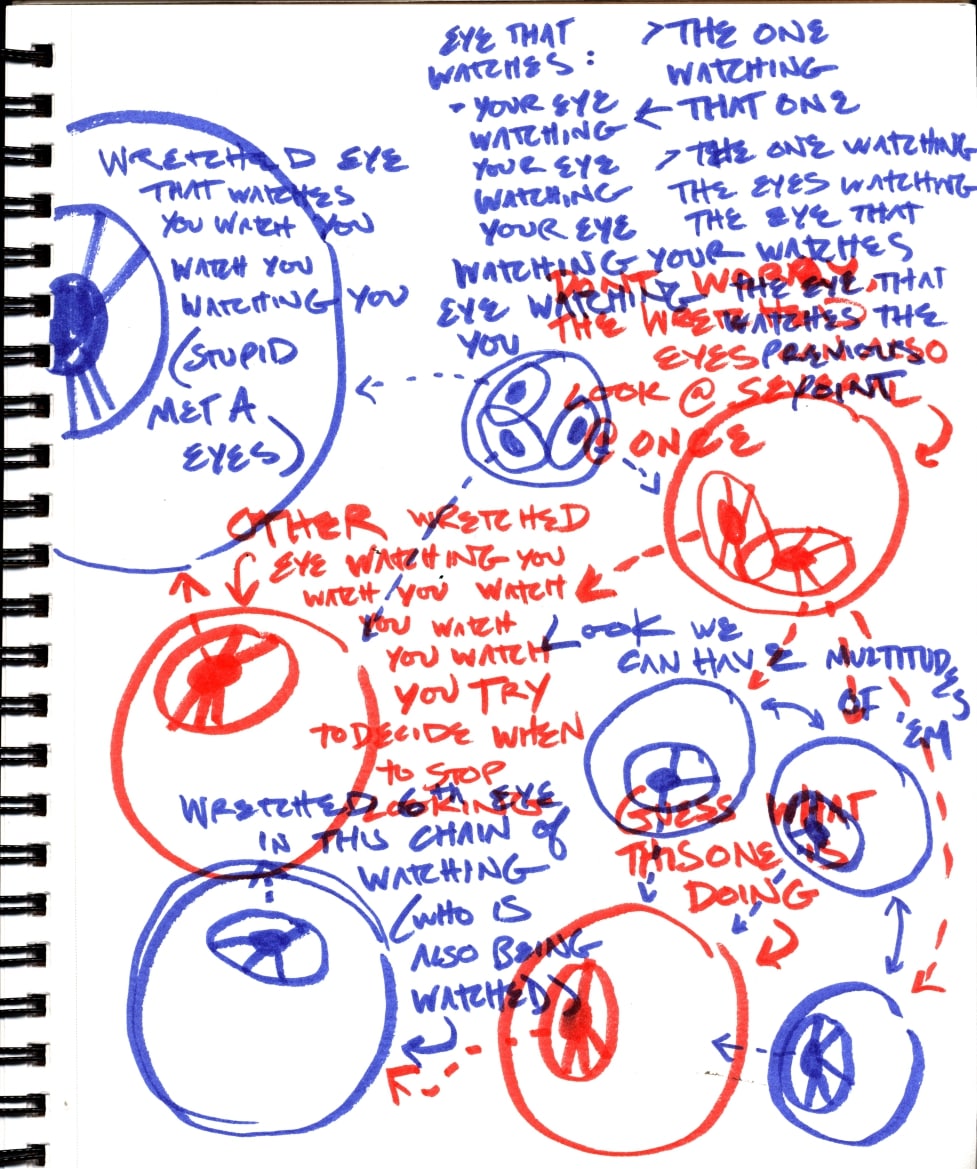 EYE THAT
WATCHES:
- YOUR EYE
WATCHING
YOUR EYE
WATCHING
YOUR EYE
WATCHING YOUR
EYE WATCHING
YOU
> THE ONE
WATCHING
← THAT ONE
> THE ONE WATCHING
THE EYES WATCHING
THE EYE THAT
WATCHES
THE EYE THAT
WATCHES THE
PREVIOUS
POINT
WRETCHED EYE
THAT WATCHES
YOU WATCH YOU
WATCH YOU
WATCHING YOU
(STUPID
META
EYES)
DON'T WORRY,
THE WRETCHED
EYES CAN ALSO
LOOK @ SEVERAL
@ ONCE
OTHER WRETCHED
EYE WATCHING YOU
WATCH YOU WATCH
YOU WATCH
YOU WATCH
YOU TRY
TO DECIDE WHEN
TO STOP
LOOKING
LOOK WE
CAN HAVE MULTITUDES
OF 'EM
WRETCHED 6TH EYE
IN THIS CHAIN OF
WATCHING
(WHO IS
ALSO BEING
WATCHED)
GUESS WHAT
THIS ONE IS
DOING